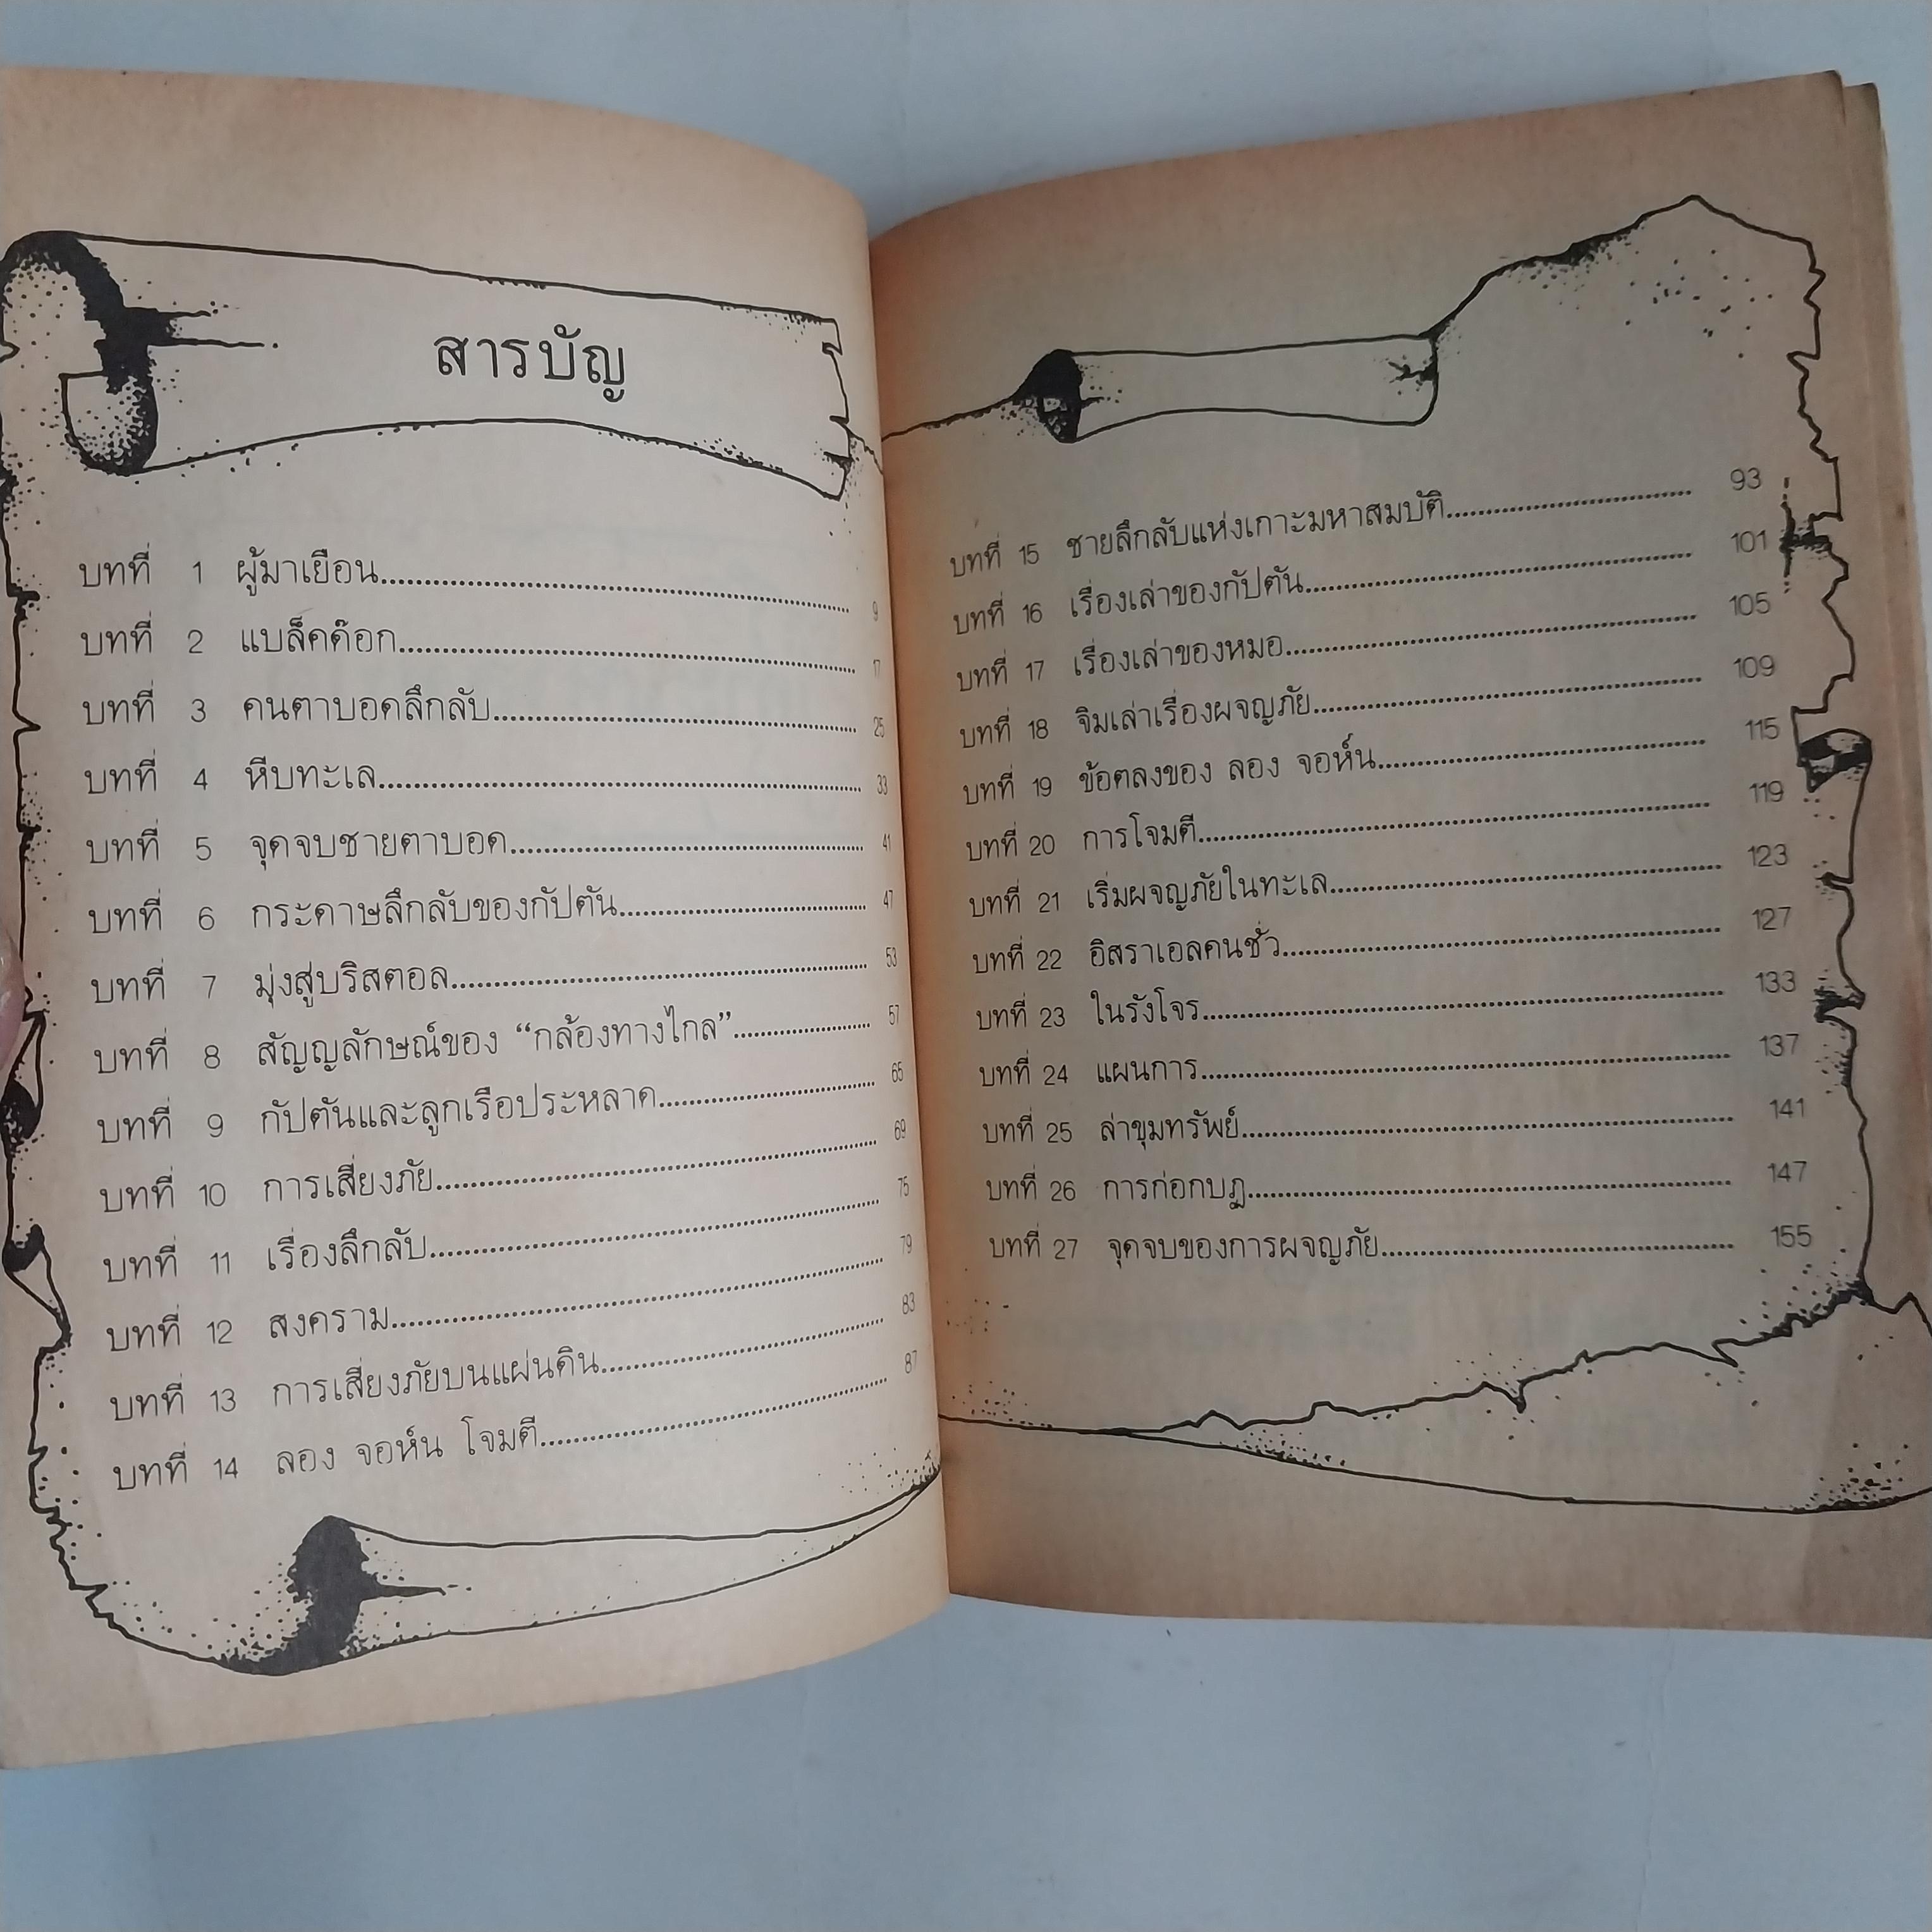 สารบัญ
บทที่ 1 ผู้มาเยือน 9
บทที่ 2 แบล็คด๊อก 17
บทที่ 3 คนตาบอดลึกลับ 25
บทที่ 4 หีบทะเล 33
บทที่ 5 จุดจบชายตาบอด 41
บทที่ 6 กระดาษลึกลับของกัปตัน 47
บทที่ 7 มุ่งสู่บริสตอล 53
บทที่ 8 สัญญลักษณ์ของ “กล้องทางไกล” 57
บทที่ 9 กัปตันและลูกเรือประหลาด 65
บทที่ 10 การเสี่ยงภัย 69
บทที่ 11 เรื่องลึกลับ 75
บทที่ 12 สงคราม 79
บทที่ 13 การเสี่ยงภัยบนแผ่นดิน 83
บทที่ 14 ลอง จอห์น โจมตี 87
บทที่ 15 ชายลึกลับแห่งเกาะมหาสมบัติ 93
บทที่ 16 เรื่องเล่าของกัปตัน 101
บทที่ 17 เรื่องเล่าของหมอ 105
บทที่ 18 จิมเล่าเรื่องผจญภัย 109
บทที่ 19 ข้อตลงของ ลอง จอห์น 115
บทที่ 20 การโจมตี 119
บทที่ 21 เริ่มผจญภัยในทะเล 123
บทที่ 22 อิสราเอลคนชั่ว 127
บทที่ 23 ในรังโจร 133
บทที่ 24 แผนการ 137
บทที่ 25 ล่าขุมทรัพย์ 141
บทที่ 26 การก่อกบฏ 147
บทที่ 27 จุดจบของการผจญภัย 155